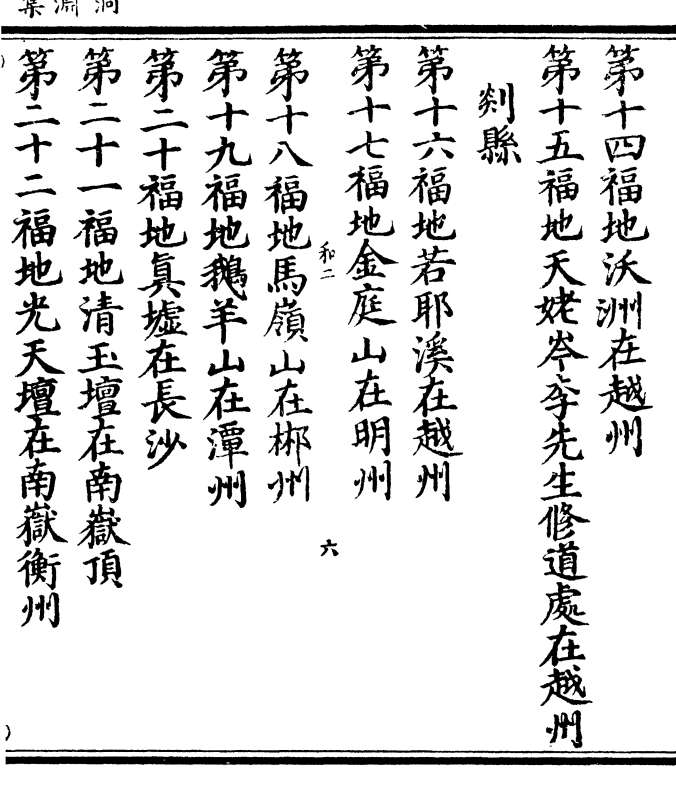 洞淵集
第十四福地沃洲在越州
第十五福地天姥岑李先生修道處在越州
剡縣
第十六福地若耶溪在越州
第十七福地金庭山在明州
和二
六
第十八福地馬嶺山在郴州
第十九福地鵝羊山在潭州
第二十福地真墟在長沙
第二十一福地清玉壇在南嶽頂
第二十二福地光天壇在南嶽衡州